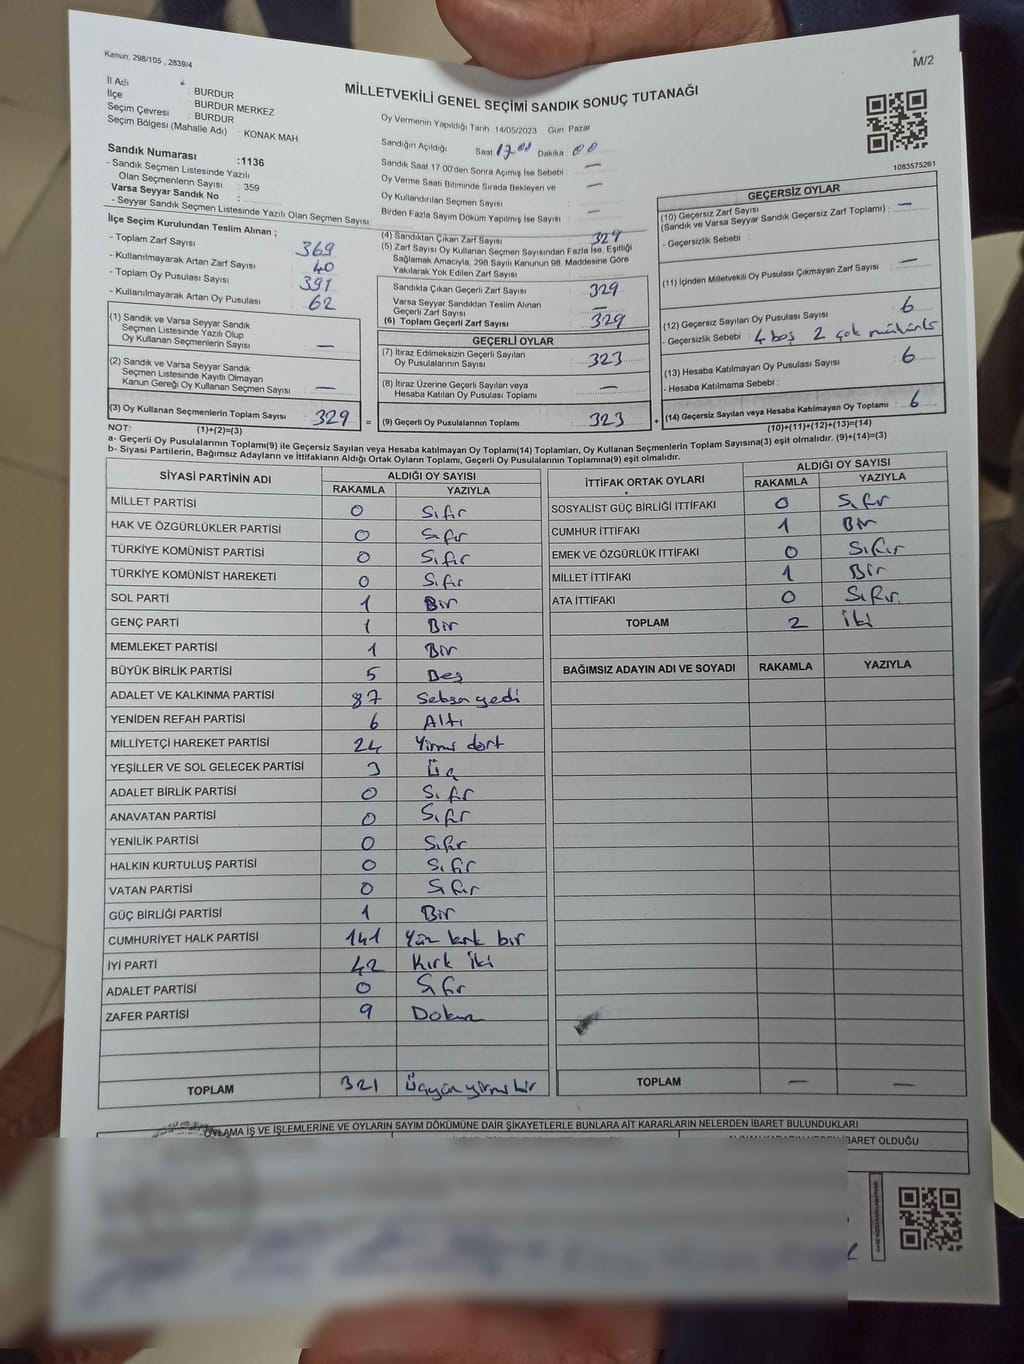 Kanun; 298/105 , 2839/4
M/2
İl Adı : BURDUR
İlçe : BURDUR MERKEZ
Seçim Çevresi : BURDUR
Seçim Bölgesi (Mahalle Adı) : KONAK MAH
MİLLETVEKİLİ GENEL SEÇİMİ SANDIK SONUÇ TUTANAĞI
Oy Vermenin Yapıldığı Tarih 14/05/2023 Gün Pazar
Sandığın Açıldığı Saat 17.00 Dakika 00
Sandık Saat 17 00'den Sonra Açımış İse Sebebi : —
Oy Verme Saati Bitiminde Sırada Bekleyen ve
Oy Kullandırılan Seçmen Sayısı : —
Birden Fazla Sayım Döküm Yapılmış İse Sayısı : —
1083575261
Sandık Numarası :1136
- Sandık Seçmen Listesinde Yazılı
Olan Seçmenlerin Sayısı : 359
Varsa Seyyar Sandık No :
- Seyyar Sandık Seçmen Listesinde Yazılı Olan Seçmen Sayısı
İlçe Seçim Kurulundan Teslim Alınan ;
- Toplam Zarf Sayısı : 369
- Kullanılmayarak Artan Zarf Sayısı : 40
- Toplam Oy Pusulası Sayısı : 391
- Kullanılmayarak Artan Oy Pusulası : 62
(1) Sandık ve Varsa Seyyar Sandık
Seçmen Listesinde Yazılı Olup
Oy Kullanan Seçmenlerin Sayısı : —
(2) Sandık ve Varsa Seyyar Sandık
Seçmen Listesinde Kayıtlı Olmayan
Kanun Gereği Oy Kullanan Seçmen Sayısı : —
(3) Oy Kullanan Seçmenlerin Toplam Sayısı : 329 =
(1)+(2)=(3)
(4) Sandıktan Çıkan Zarf Sayısı : 329
(5) Zarf Sayısı Oy Kullanan Seçmen Sayısından Fazla İse, Eşitliği
Sağlamak Amacıyla, 298 Sayılı Kanunun 98. Maddesine Göre
Yakılarak Yok Edilen Zarf Sayısı :
Sandıkta Çıkan Geçerli Zarf Sayısı : 329
Varsa Seyyar Sandıktan Teslim Alınan
Geçerli Zarf Sayısı : —
(6) Toplam Geçerli Zarf Sayısı : 329
GEÇERLİ OYLAR
(7) İtiraz Edilmeksizin Geçerli Sayılan
Oy Pusulalarının Sayısı : 323
(8) İtiraz Üzerine Geçerli Sayılan veya
Hesaba Katılan Oy Pusulası Toplamı : —
(9) Geçerli Oy Pusulalarının Toplamı : 323 +
GEÇERSİZ OYLAR
(10) Geçersiz Zarf Sayısı
(Sandık ve Varsa Seyyar Sandık Geçersiz Zarf Toplamı) : —
- Geçersizlik Sebebi :
(11) İçinden Milletvekili Oy Pusulası Çıkmayan Zarf Sayısı : —
(12) Geçersiz Sayılan Oy Pusulası Sayısı : 6
- Geçersizlik Sebebi : 4 boş 2 çok mühürlü
(13) Hesaba Katılmayan Oy Pusulası Sayısı : 6
- Hesaba Katılmama Sebebi :
(14) Geçersiz Sayılan veya Hesaba Katılmayan Oy Toplamı : 6
(10)+(11)+(12)+(13)=(14)
NOT:
a- Geçerli Oy Pusulalarının Toplamı(9) ile Geçersiz Sayılan veya Hesaba katılmayan Oy Toplamı(14) Toplamları, Oy Kullanan Seçmenlerin Toplam Sayısına(3) eşit olmalıdır. (9)+(14)=(3)
b- Siyasi Partilerin, Bağımsız Adayların ve İttifakların Aldığı Ortak Oyların Toplamı, Geçerli Oy Pusulalarının Toplamına(9) eşit olmalıdır.
SİYASİ PARTİNİN ADI ALDIĞI OY SAYISI
RAKAMLA YAZIYLA
MİLLET PARTİSİ 0 Sıfır
HAK VE ÖZGÜRLÜKLER PARTİSİ 0 Sıfır
TÜRKİYE KOMÜNİST PARTİSİ 0 Sıfır
TÜRKİYE KOMÜNİST HAREKETİ 0 Sıfır
SOL PARTİ 1 Bir
GENÇ PARTİ 1 Bir
MEMLEKET PARTİSİ 1 Bir
BÜYÜK BİRLİK PARTİSİ 5 Beş
ADALET VE KALKINMA PARTİSİ 87 Seksen yedi
YENİDEN REFAH PARTİSİ 6 Altı
MİLLİYETÇİ HAREKET PARTİSİ 24 Yirmi dört
YEŞİLLER VE SOL GELECEK PARTİSİ 3 Üç
ADALET BİRLİK PARTİSİ 0 Sıfır
ANAVATAN PARTİSİ 0 Sıfır
YENİLİK PARTİSİ 0 Sıfır
HALKIN KURTULUŞ PARTİSİ 0 Sıfır
VATAN PARTİSİ 0 Sıfır
GÜÇ BİRLİĞİ PARTİSİ 1 Bir
CUMHURİYET HALK PARTİSİ 141 Yüz kırk bir
İYİ PARTİ 42 Kırk iki
ADALET PARTİSİ 0 Sıfır
ZAFER PARTİSİ 9 Dokuz
TOPLAM 321 Üçyüzyirmi bir
İTTİFAK ORTAK OYLARI ALDIĞI OY SAYISI
RAKAMLA YAZIYLA
SOSYALİST GÜÇ BİRLİĞİ İTTİFAKI 0 Sıfır
CUMHUR İTTİFAKI 1 Bir
EMEK VE ÖZGÜRLÜK İTTİFAKI 0 Sıfır
MİLLET İTTİFAKI 1 Bir
ATA İTTİFAKI 0 Sıfır.
TOPLAM 2 İki
BAĞIMSIZ ADAYIN ADI VE SOYADI RAKAMLA YAZIYLA
TOPLAM — —
OYLAMA İŞ VE İŞLEMLERİNE VE OYLARIN SAYIM DÖKÜMÜNE DAİR ŞİKAYETLERLE BUNLARA AİT KARARLARIN NELERDEN İBARET BULUNDUKLARI
İBARET OLDUĞU